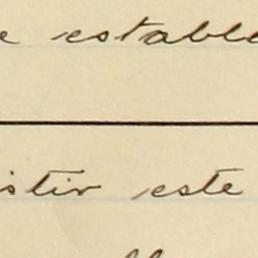 e estable
istir este